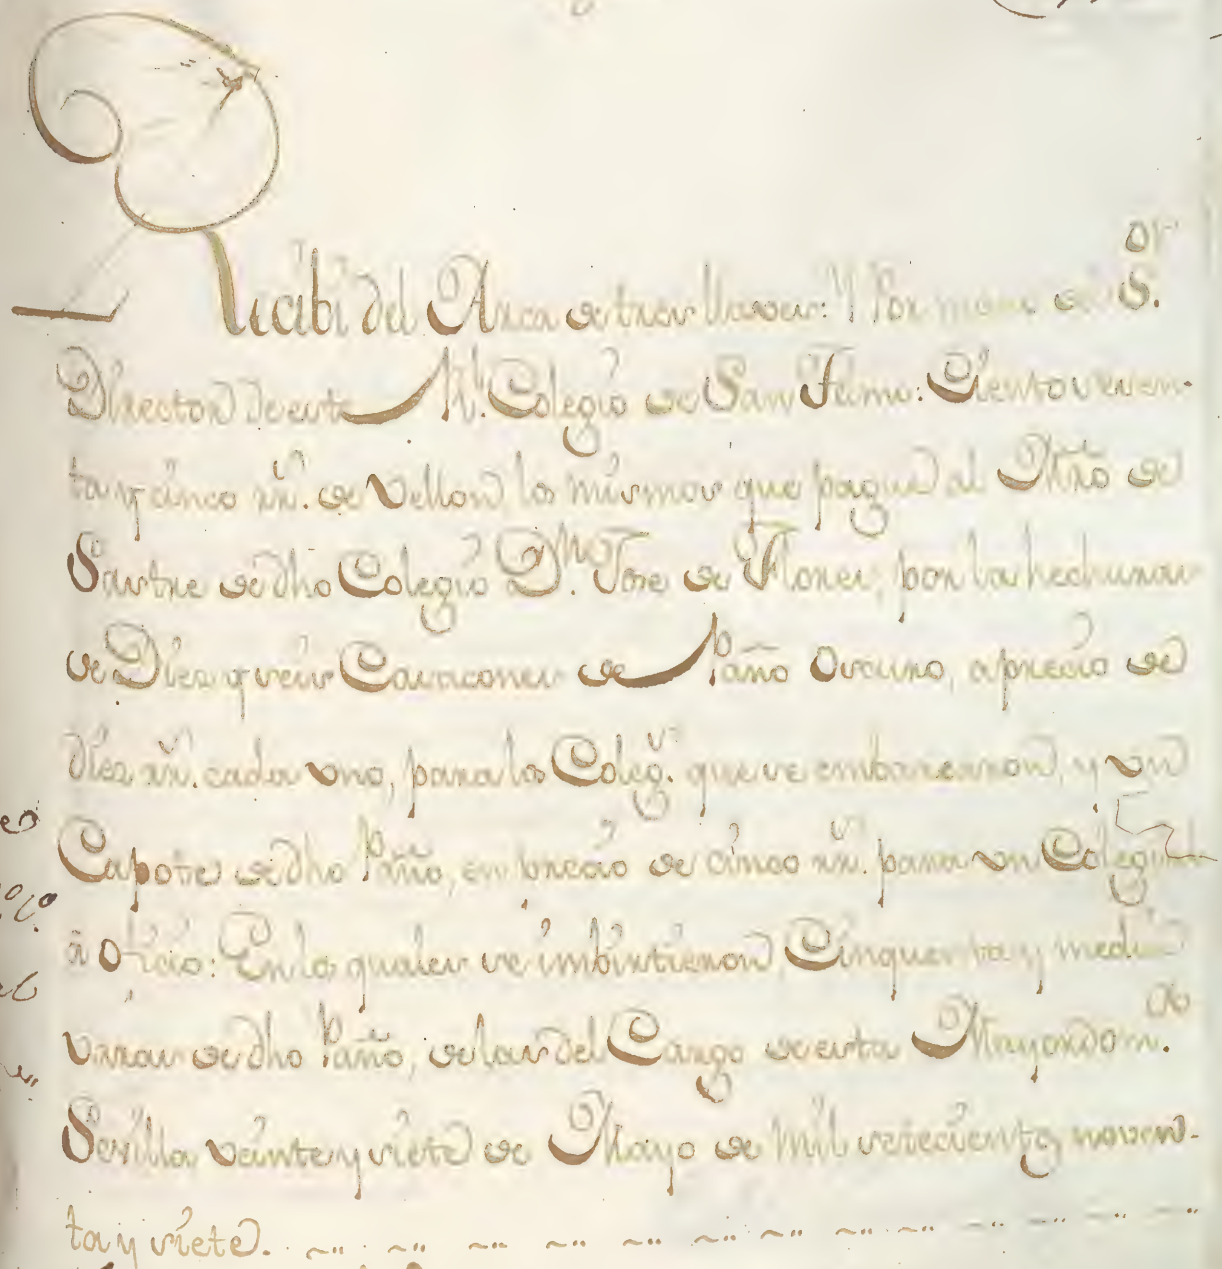 Recibi del Arca de tres llaves: Por mano del S.or
Director de este Rl. Colegio de San Telmo: Ciento sesen-
ta y cinco rrs. de Vellon, los mismos que pagué al Mrō de
Sastre de dho Colegio Dn. Jose de Flores, por las hechuras
de Diez y seis Casacones de Paño Oscuro, a precio de
diez rrs. cada uno, para los Colegs. que se embarcaron, y un
Capote de dho Paño, en precio de cinco rrs. para un Colegial
à Oficio: En los quales se imbirtieron Cinquenta y media
varas de dho Paño, de las del Cargo de esta Mayordom.a
Sevilla veinte y siete de Mayo de mil setecientos noven-
ta y siete.